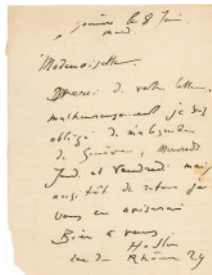 Genève le 8 Juin
mard
Mademoiselle.
Merci de votre lettre.
malheureusement je suis
obligé de m'absenter
de Genève, Mercredi
Jeud. et Vendredi mais
aussitôt de retour je
vous en aviserai
Bien à vous
Hodler
rue du Rhône 29